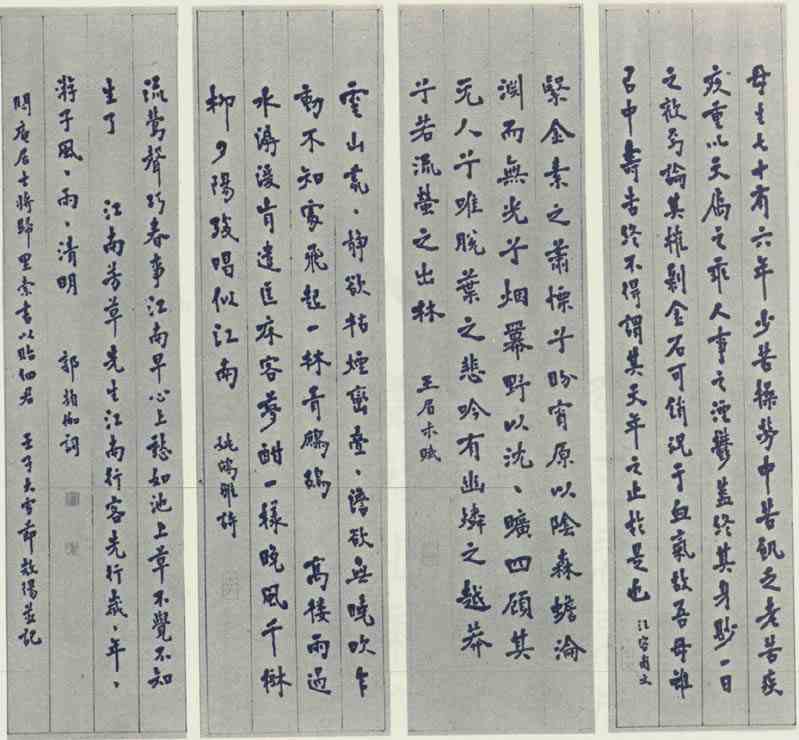 母生七十有六年少苦操勞中苦飢乏老苦疾
疢重以天屬之乖人事之湮鬱蓋終其身尠一日
之歡焉論其摧剝金石可銷況于血氣故吾母雖
㠯中壽告終不得謂其天年之止於是也 汪容甫文
緊金素之蕭慄兮盼宵原以陰森蟾淪
淵而無光兮烟羃野以沈、曠四顧其
无人兮唯脫葉之悲吟有幽燐之越莽
兮若流螢之出林 王眉叔賦
雲山、靜欲枯煙巒疊、澹欲無曉吹乍
動不知處飛起一林青鷓鴣 高樓雨過
水潺湲肯遣匡牀客夢酣一樣晚風千樹
柳夕陽殘唱似江南 姚鵷雛詩
流鶯聲巧春事江南早心上愁如池上草不覺不知
生了 江南芳草先生江南行客先行歲、年、
游子風、雨、清明 郭頻伽詞
閒居士將歸里索書以貽細君 壬子大雪節並記